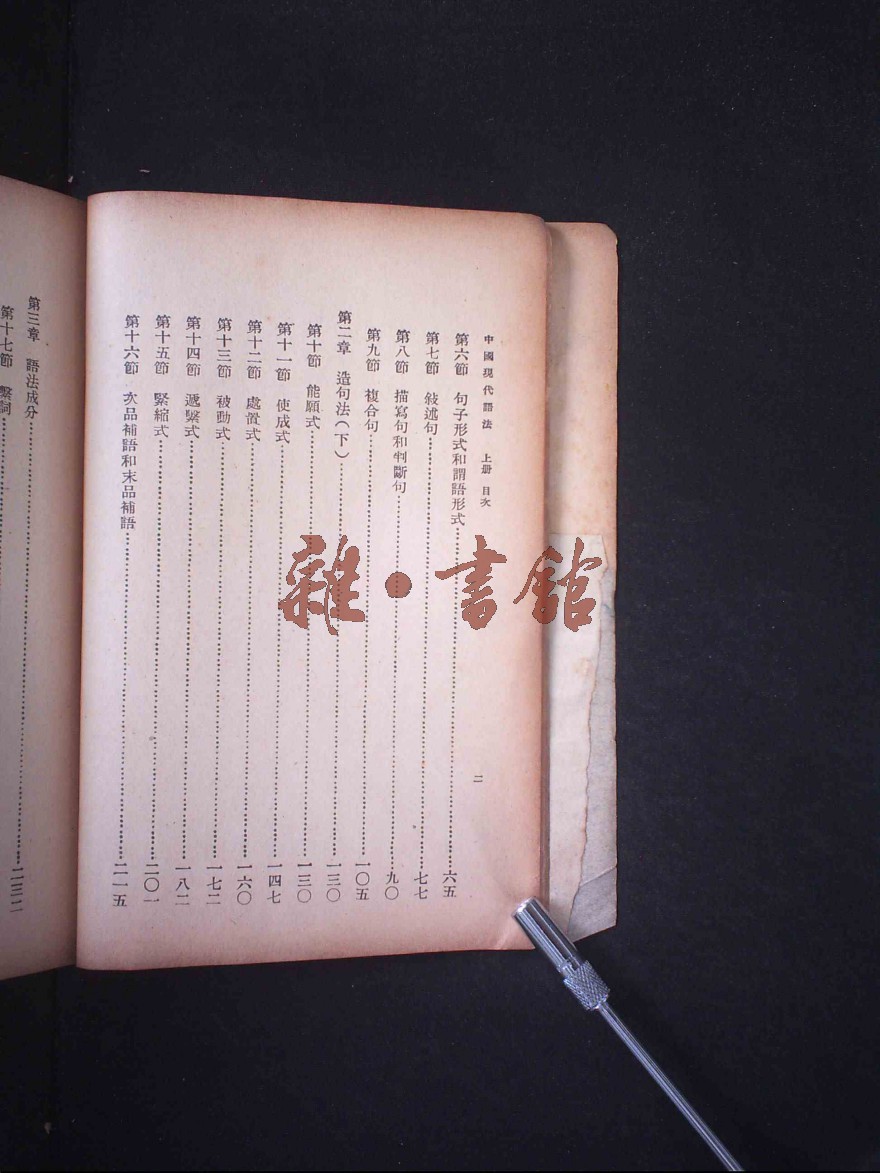 中國現代語法　上册　目次
二
第六節　句子形式和謂語形式……六五
第七節　敍述句……七七
第八節　描寫句和判斷句……九〇
第九節　複合句……一〇五
第二章　造句法（下）……一三〇
第十節　能願式……一三〇
第十一節　使成式……一四七
第十二節　處置式……一六〇
第十三節　被動式……一七二
第十四節　遞繫式……一八二
第十五節　緊縮式……二〇一
第十六節　次品補語和末品補語……二一五
第三章　語法成分……二三二
第十七節　繫詞
雜·書館